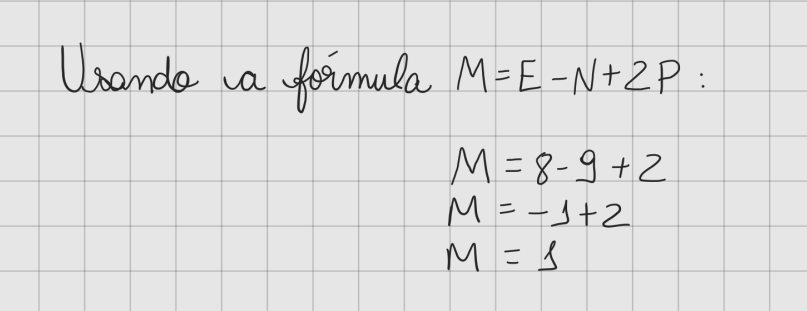 Usando a fórmula M=E-N+2P:
M = 8-9+2
M = -1+2
M = 1